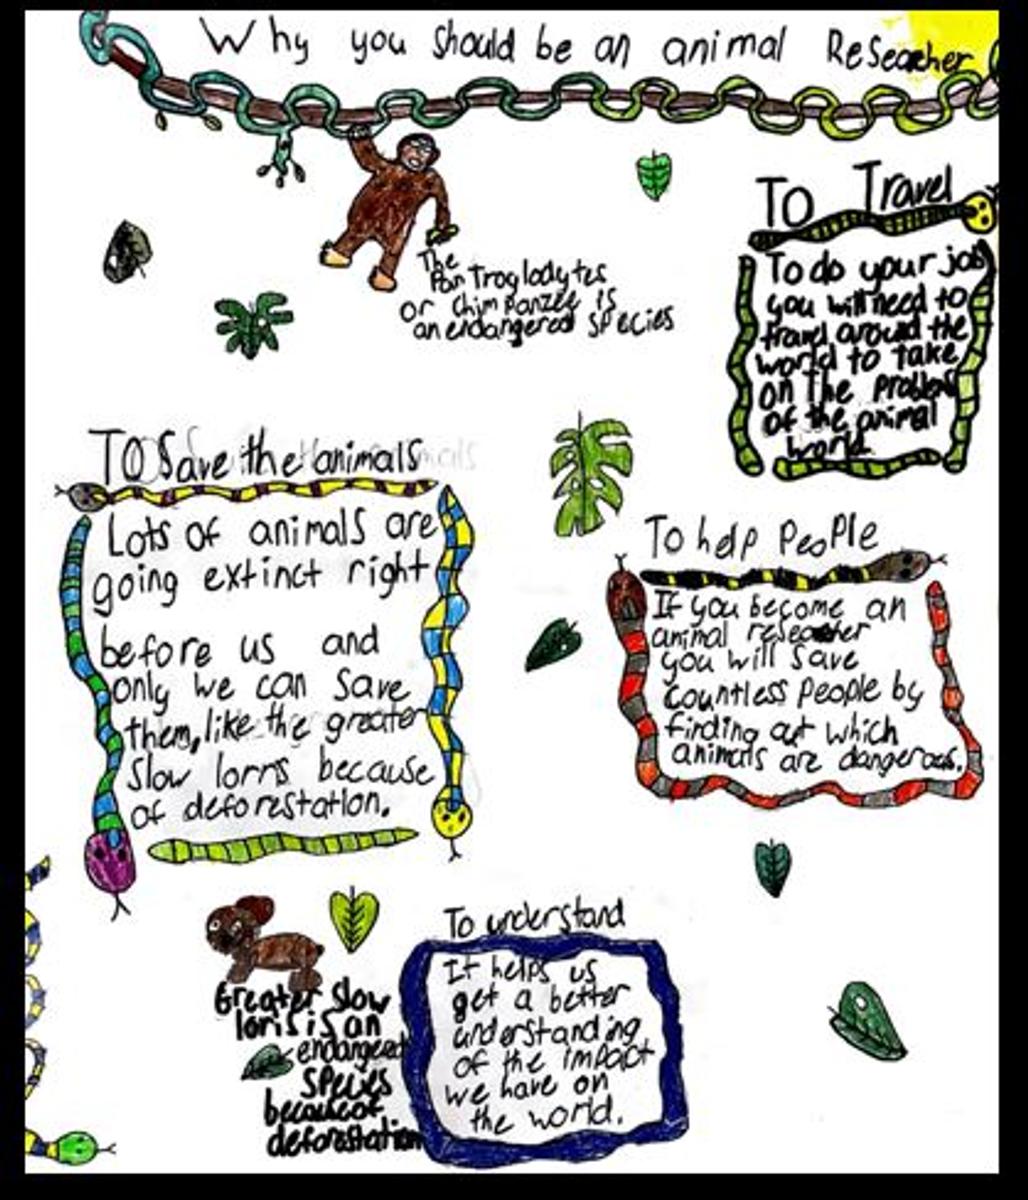 Why you should be an animal Researcher
The
Pan Troglodytes
or Chimpanzee is
an endangered species
To Travel
To do your job
you will need to
travel around the
world to take
on the problem
of the animal
world.
To Save the animals
Lots of animals are
going extinct right
before us and
only we can save
them, like the greater
slow lorris because
of deforestation.
To help People
If you become an
animal researcher
you will save
countless people by
finding out which
animals are dangerous.
Greater slow
loris is an
endangered
species
because of
deforestation
To understand
It helps us
get a better
understanding
of the impact
we have on
the world.